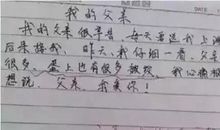 我的父亲
我的父亲很辛苦,每天要送我上
后来接我,昨天,我仔细一看,父亲
很多,脸上也有很多皱纹,我心
想说,父亲,我爱你!
DATE